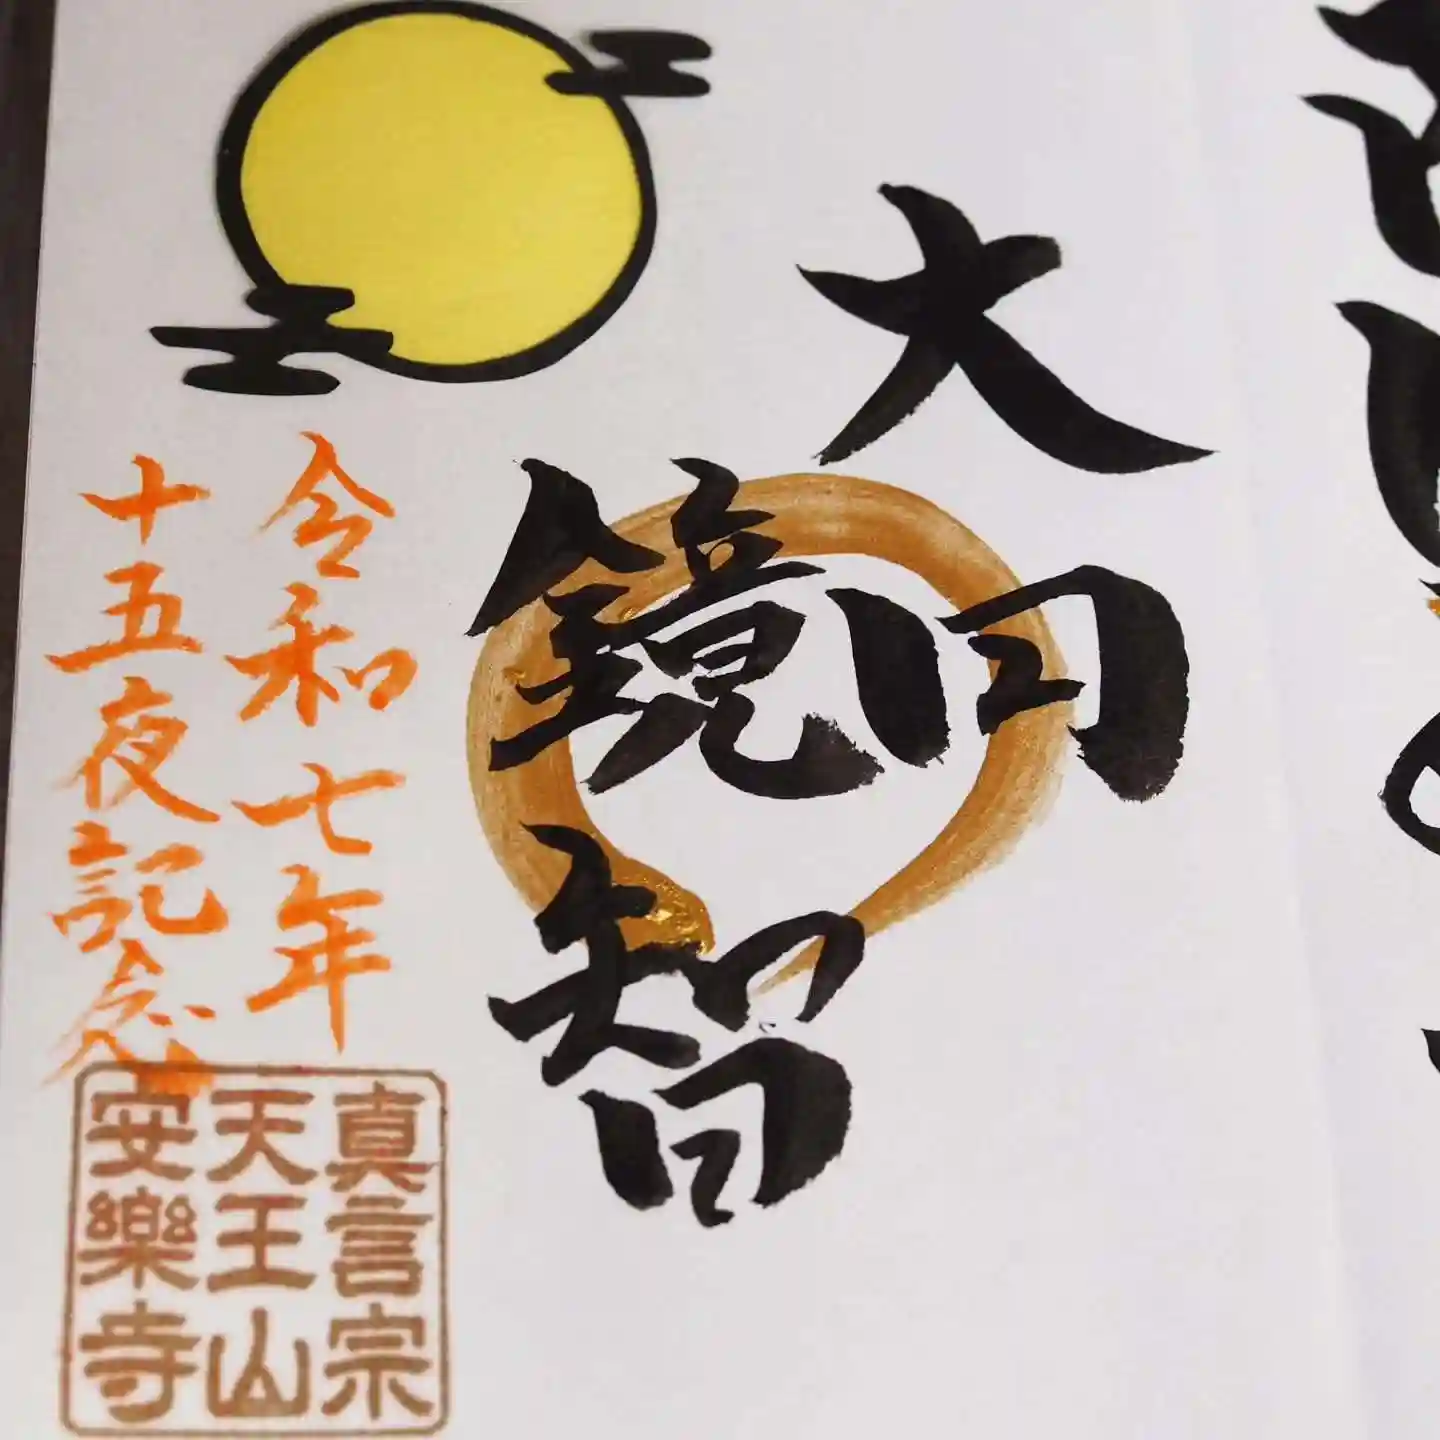 大円
鏡智
令和七年
十五夜記念
真言宗
天王山
安樂寺